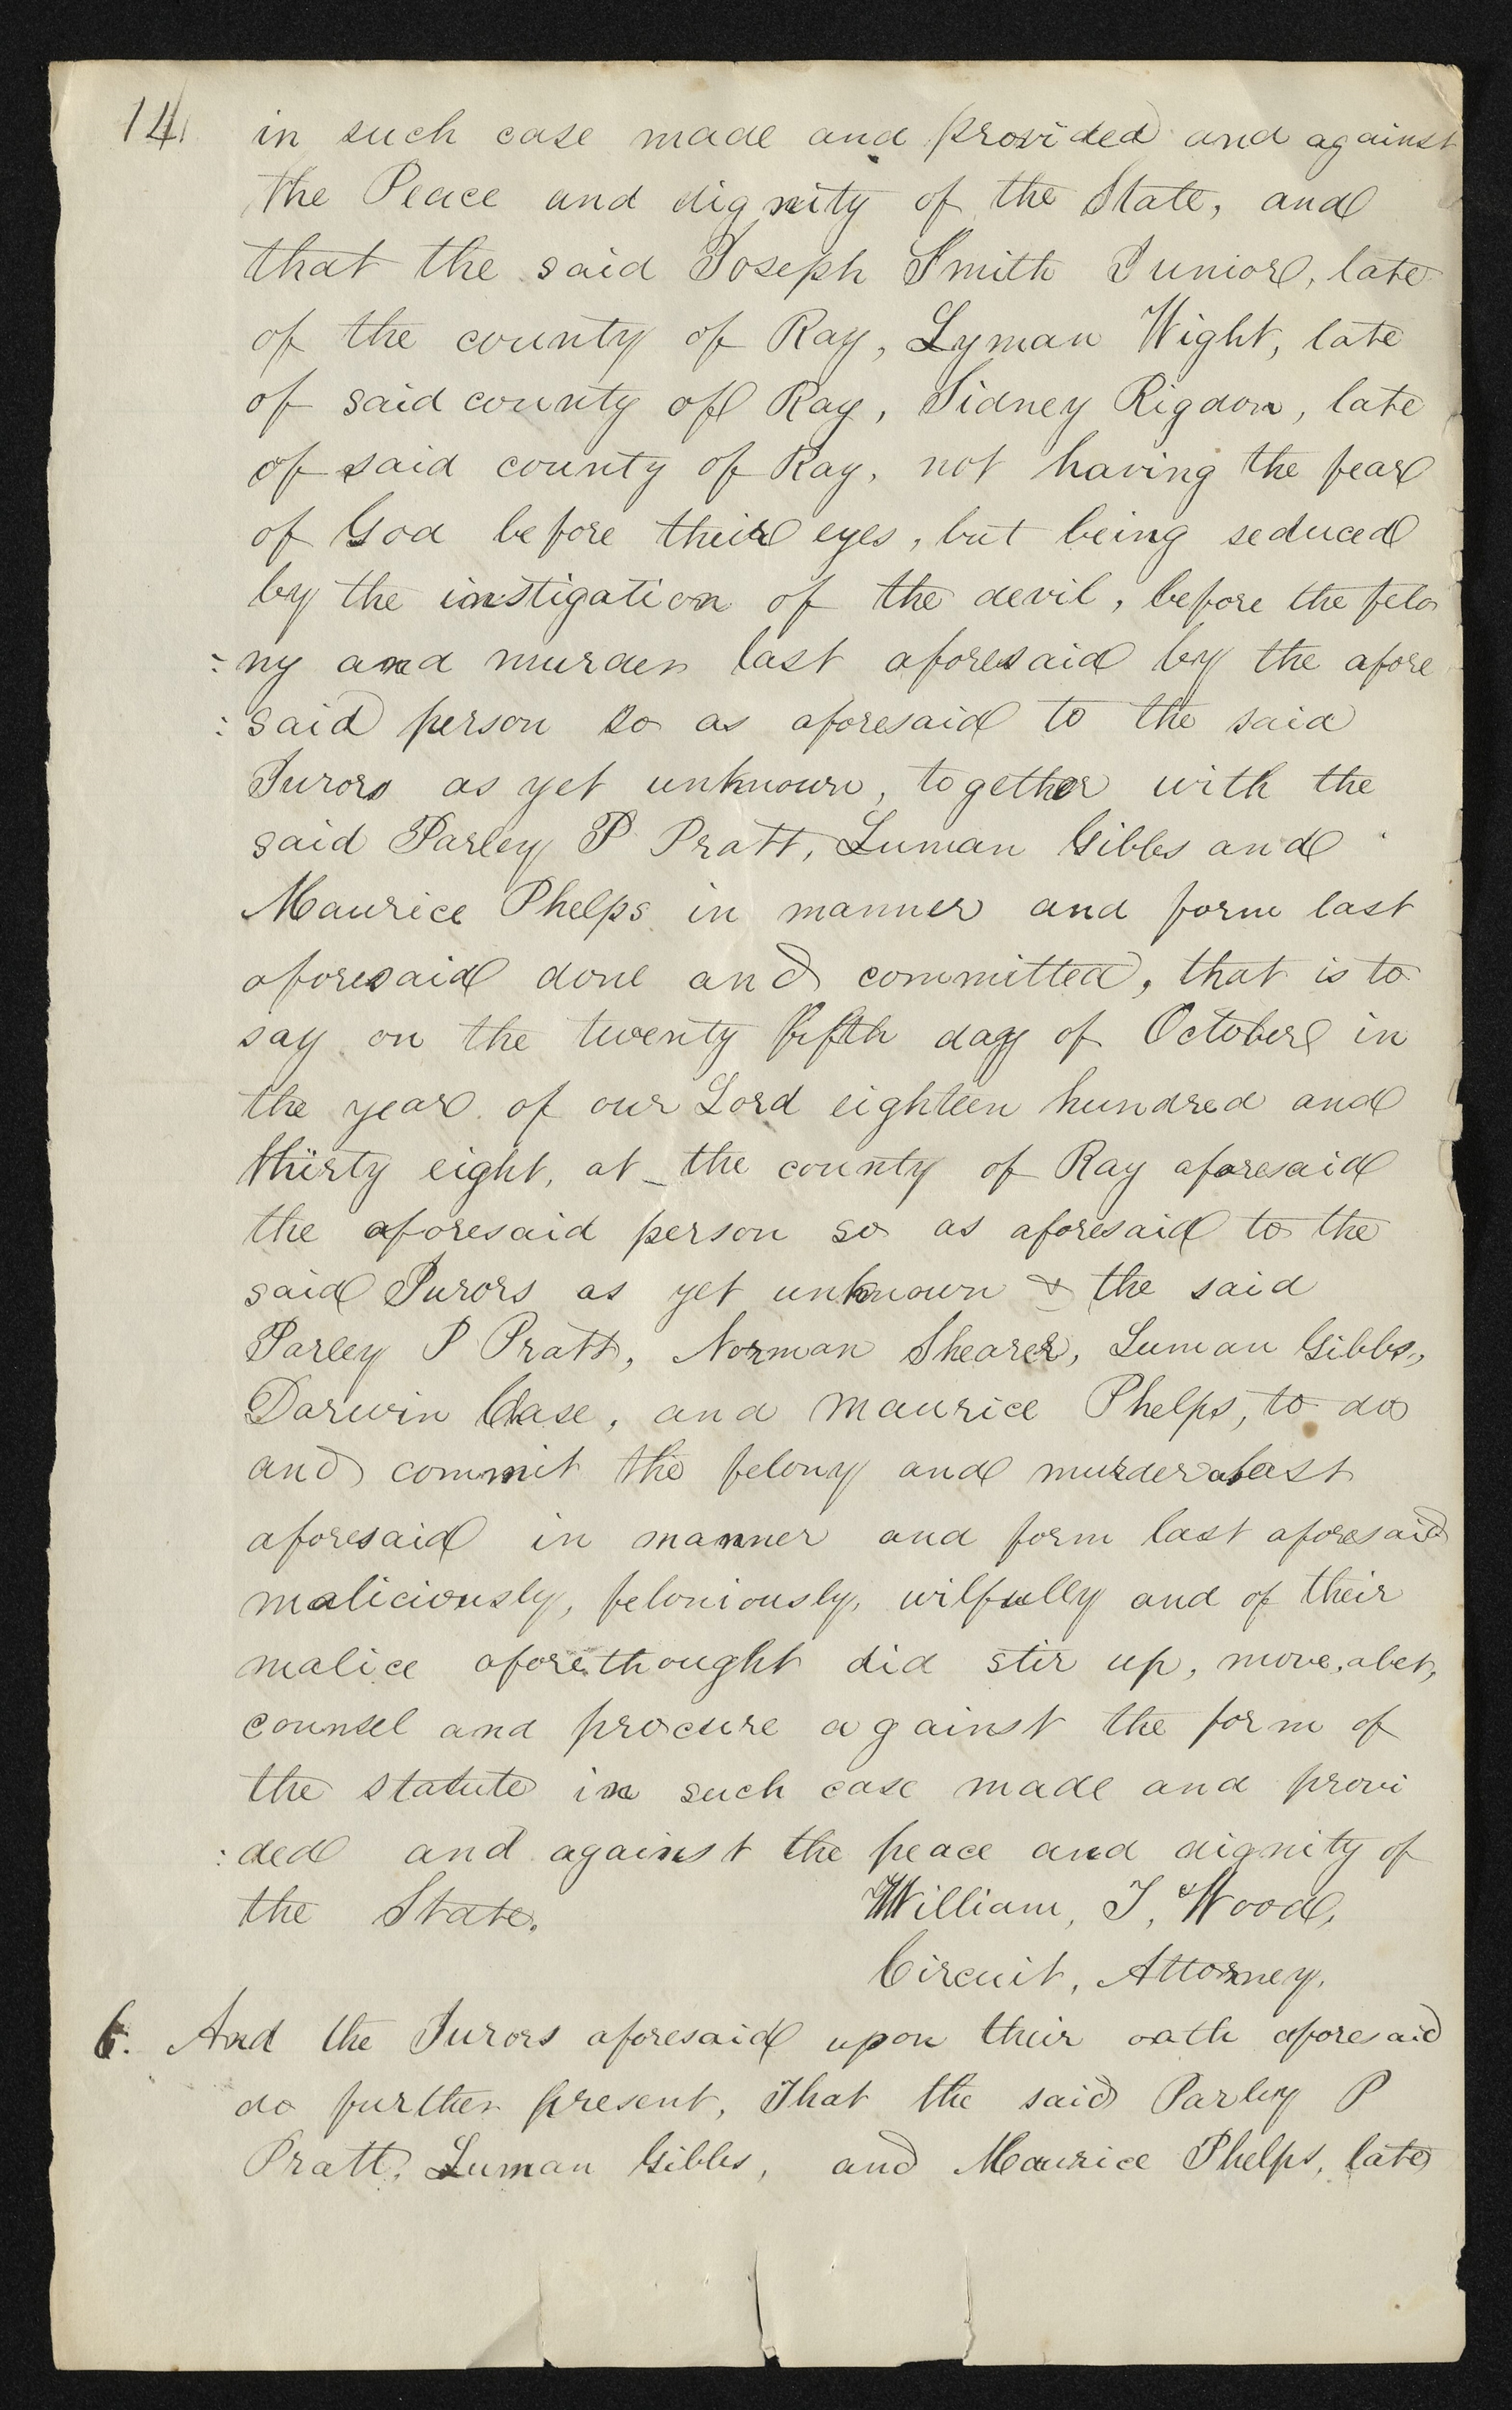 14
in such case made and provided and against
the Peace and dignity of the State, and
that the said Joseph Smith Junior, late
of the county of Ray, Lyman Wight, late
of said county of Ray, Sidney Rigdon, late
of said county of Ray, not having the fear
of God before their eyes, but being seduced
by the instigation of the devil, before the felo
:ny and murder last aforesaid by the afore
:said person so as aforesaid to the said
Jurors as yet unknown, together with the
said Parley P Pratt, Luman Gibbs and
Maurice Phelps in manner and form last
aforesaid done and committed, that is to
say on the twenty fifth day of October in
the year of our Lord eighteen hundred and
thirty eight, at the county of Ray aforesaid
the aforesaid person so as aforesaid to the
said Jurors as yet unknown & the said
Parley P Pratt, Norman Shearer, Luman Gibbs,
Darwin Chase, and Maurice Phelps, to do
and commit the felony and murder last
aforesaid in manner and form last aforesaid
maliciously, feloniously, wilfully and of their
malice aforethought did stir up, move, abet,
counsel and procure against the form of
the statute in such case made and provi
:ded and against the peace and dignity of
the State. William, T, Wood,
Circuit, Attorney.
6. And the Jurors aforesaid upon their oath aforesaid
do further present, That the said Parley P
Pratt, Luman Gibbs, and Maurice Phelps, late